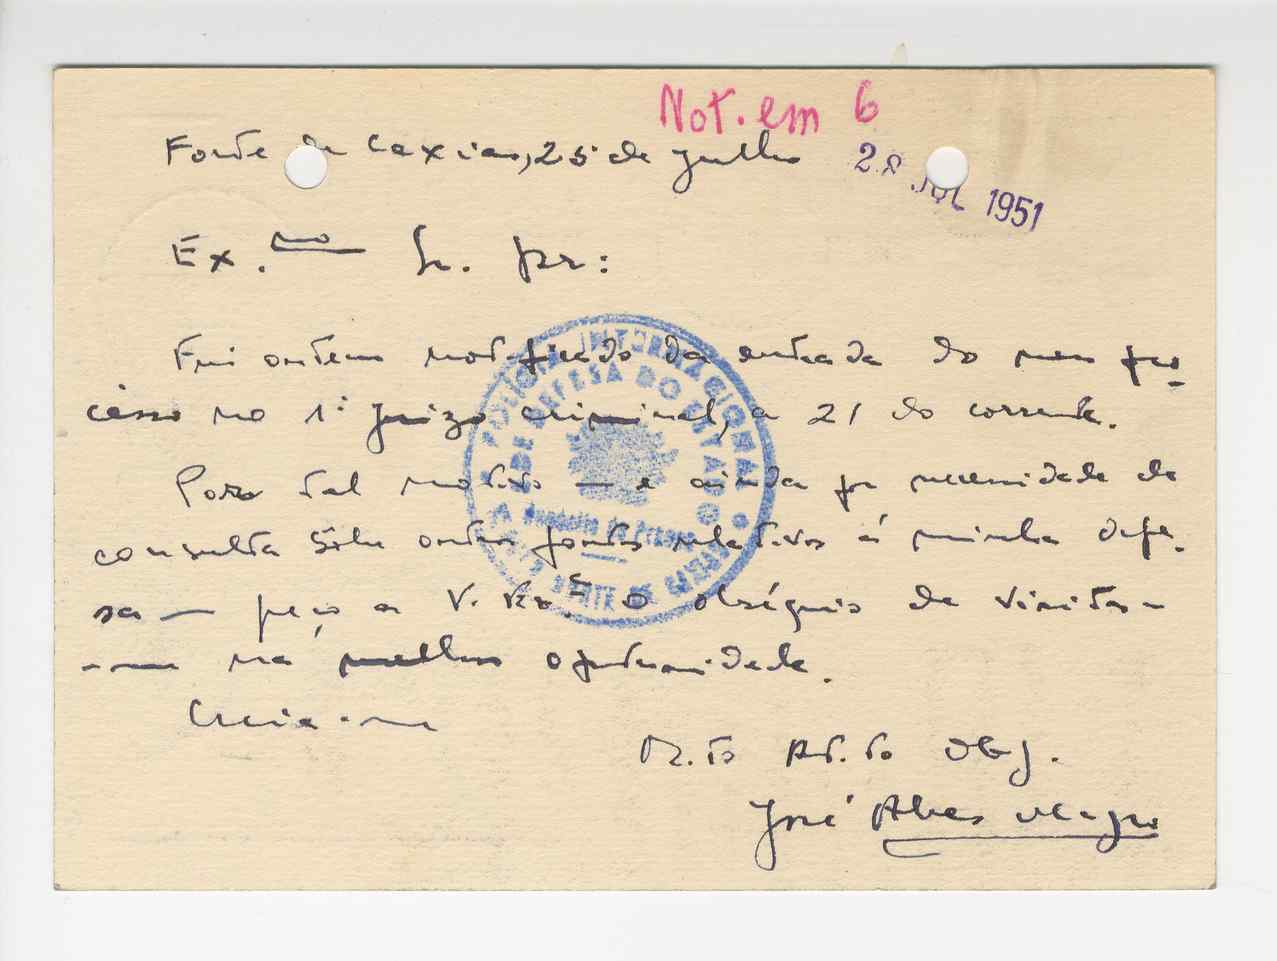 Not. em 6
Forte de Caxias, 25 de Julho
28 JUL 1951
Ex.mo Sr. Dr:
Fui ontem notificado da entrada do meu pro-
cesso no 1º Juizo criminal, a 21 do corrente.
Por tal motivo — e ainda por necessidade de
consulta sôbre outros pontos relativos á minha defe-
sa — peço a V. Ex.ª o obséquio de visitar-
-me na melhor oportunidade.
Creia-me
M.to At.to Obg.
José Alves
POLICIA INTERNACIONAL E DE DEFESA DO ESTADO